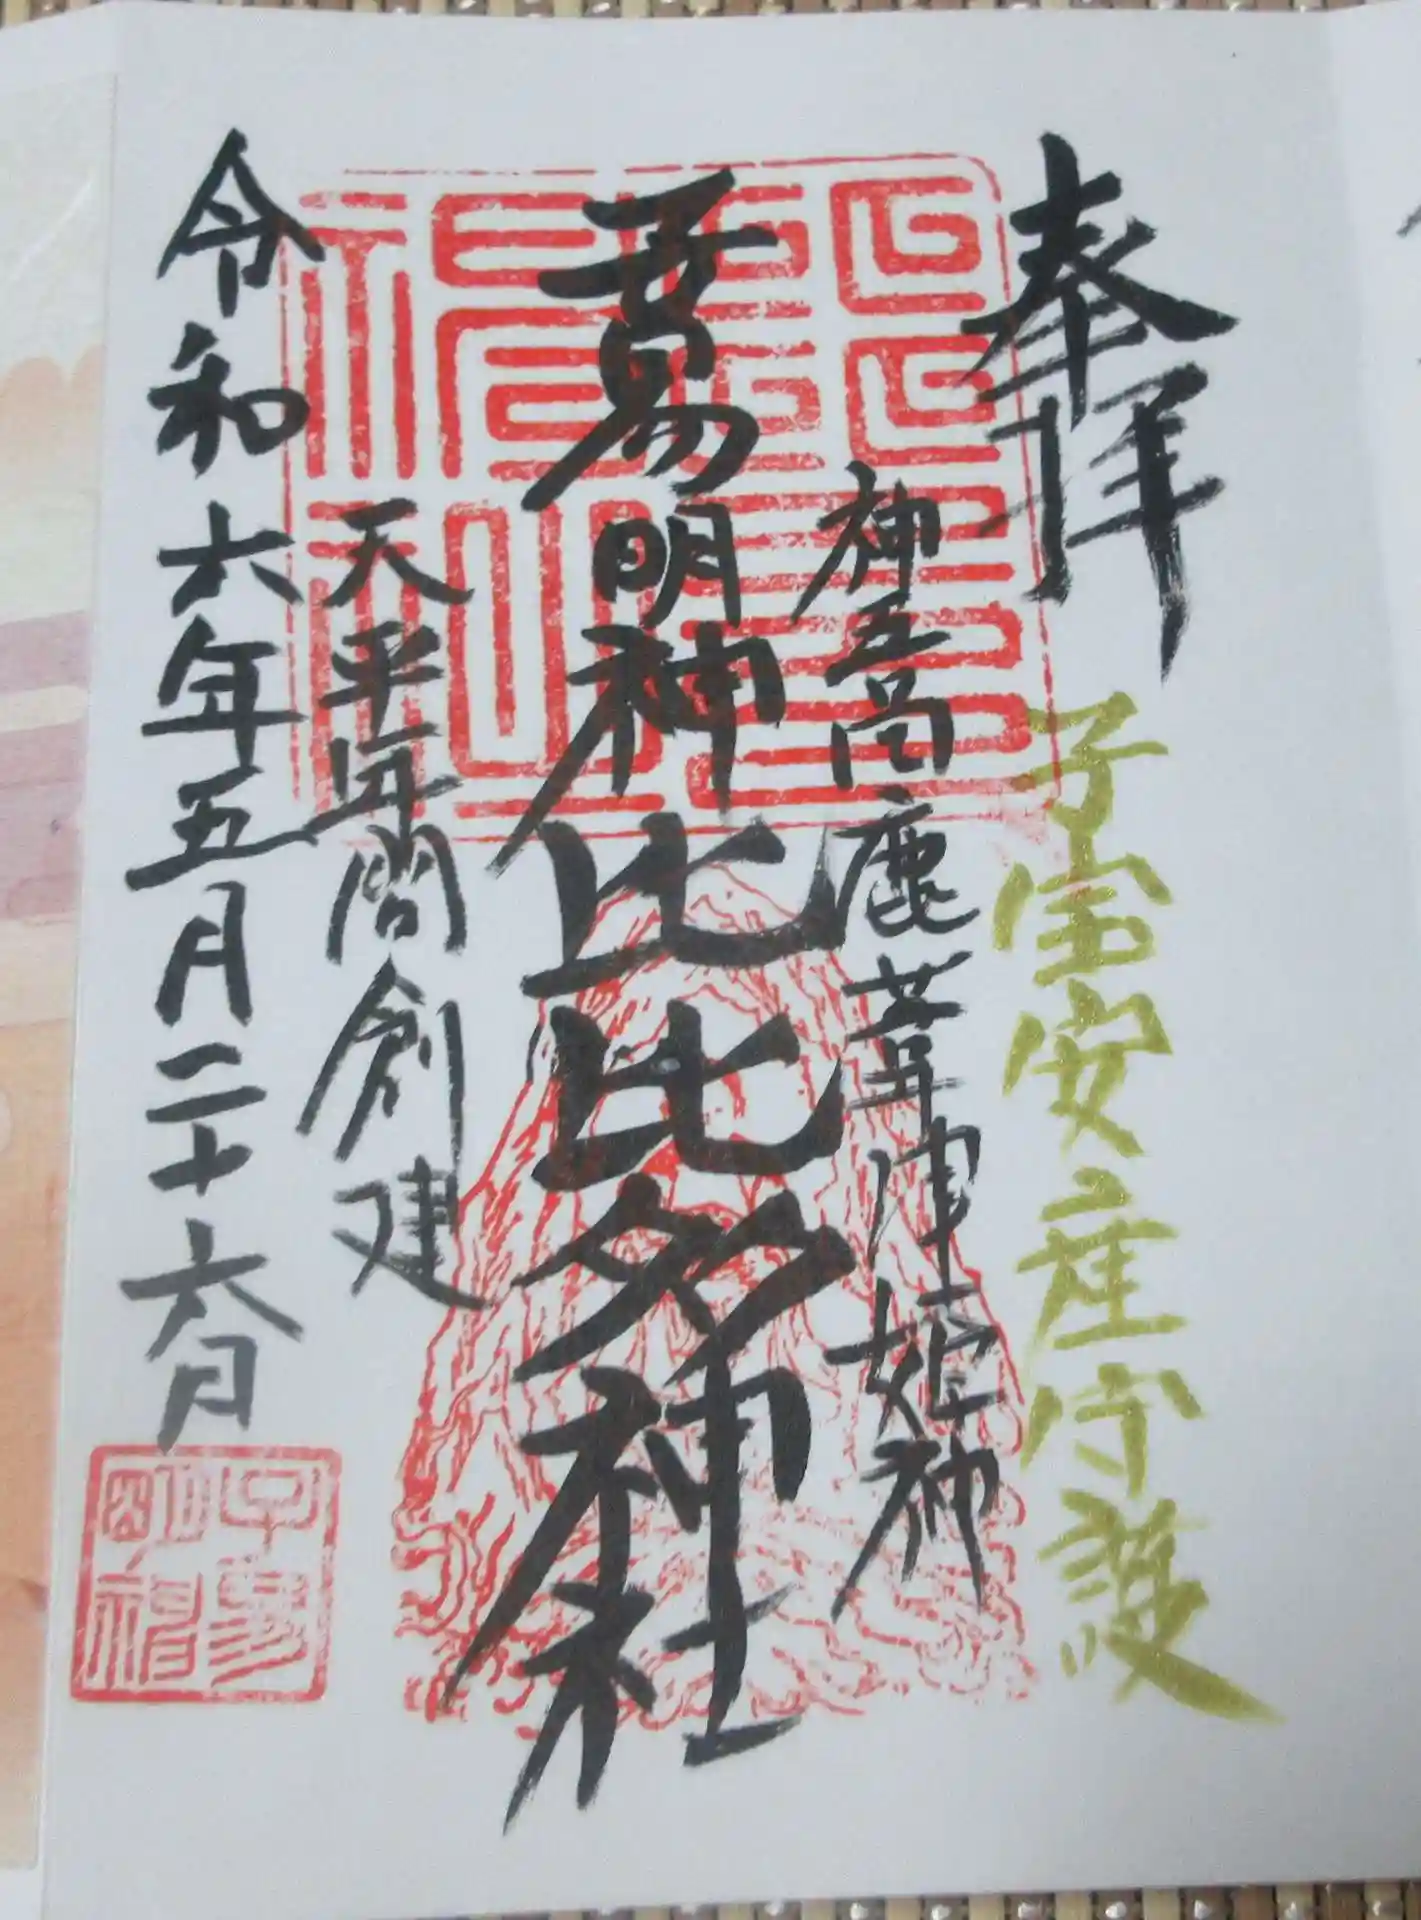 奉拝
子宝安産守護
神吾田鹿葦津姫神
子易明神 比比多神社
天平年間創建
令和六年五月二十六日
子易
明神